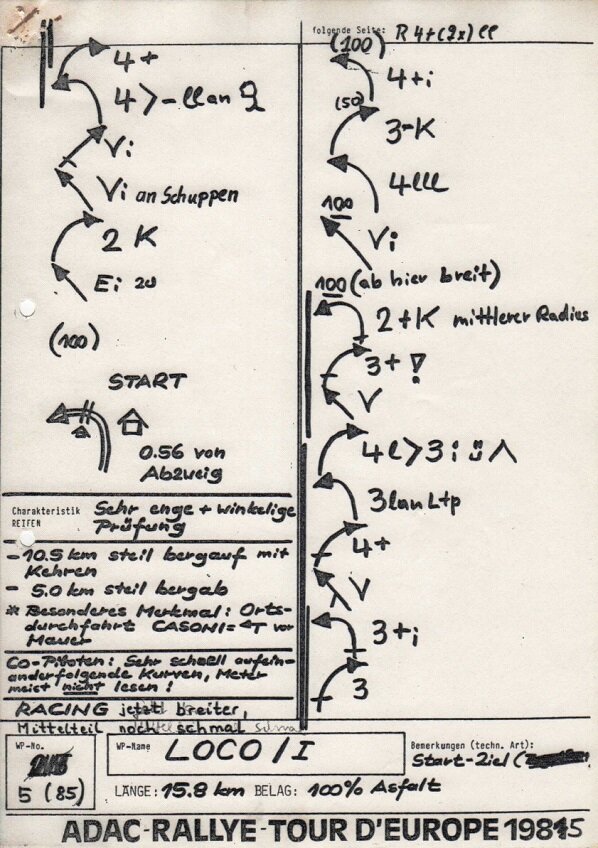 4+
4>-llan
Vi
Vi an Schuppen
2 K
Ei 20
(100)
START
0.56 von
Abzweig
Charakteristik
REIFEN
Sehr enge + winkelige
Prüfung
- 10.5 km steil bergauf mit
Kehren
- 5.0 km steil bergab
* Besonderes Merkmal: Orts-
durchfahrt CASONI= T vor
Mauer
Co-Piloten: Sehr schnell aufein-
anderfolgende Kurven, Meter
meist nicht lesen!
RACING jetzt breiter,
Mittelteil noch schmal
folgende Seite: R 4+(2x) ll
(100)
4+i
(50)
3-K
4lll
100
Vi
100 (ab hier breit)
2+K mittlerer Radius
3+ !
V
4l>3i
3lanLtp
4+
V
3+i
3
WP-No.
5 (85)
WP-Name
LOCO/I
LÄNGE: 15.8 km BELAG: 100% Asfalt
Bemerkungen (techn. Art):
Start-Ziel (
ADAC-RALLYE-TOUR D'EUROPE 1985